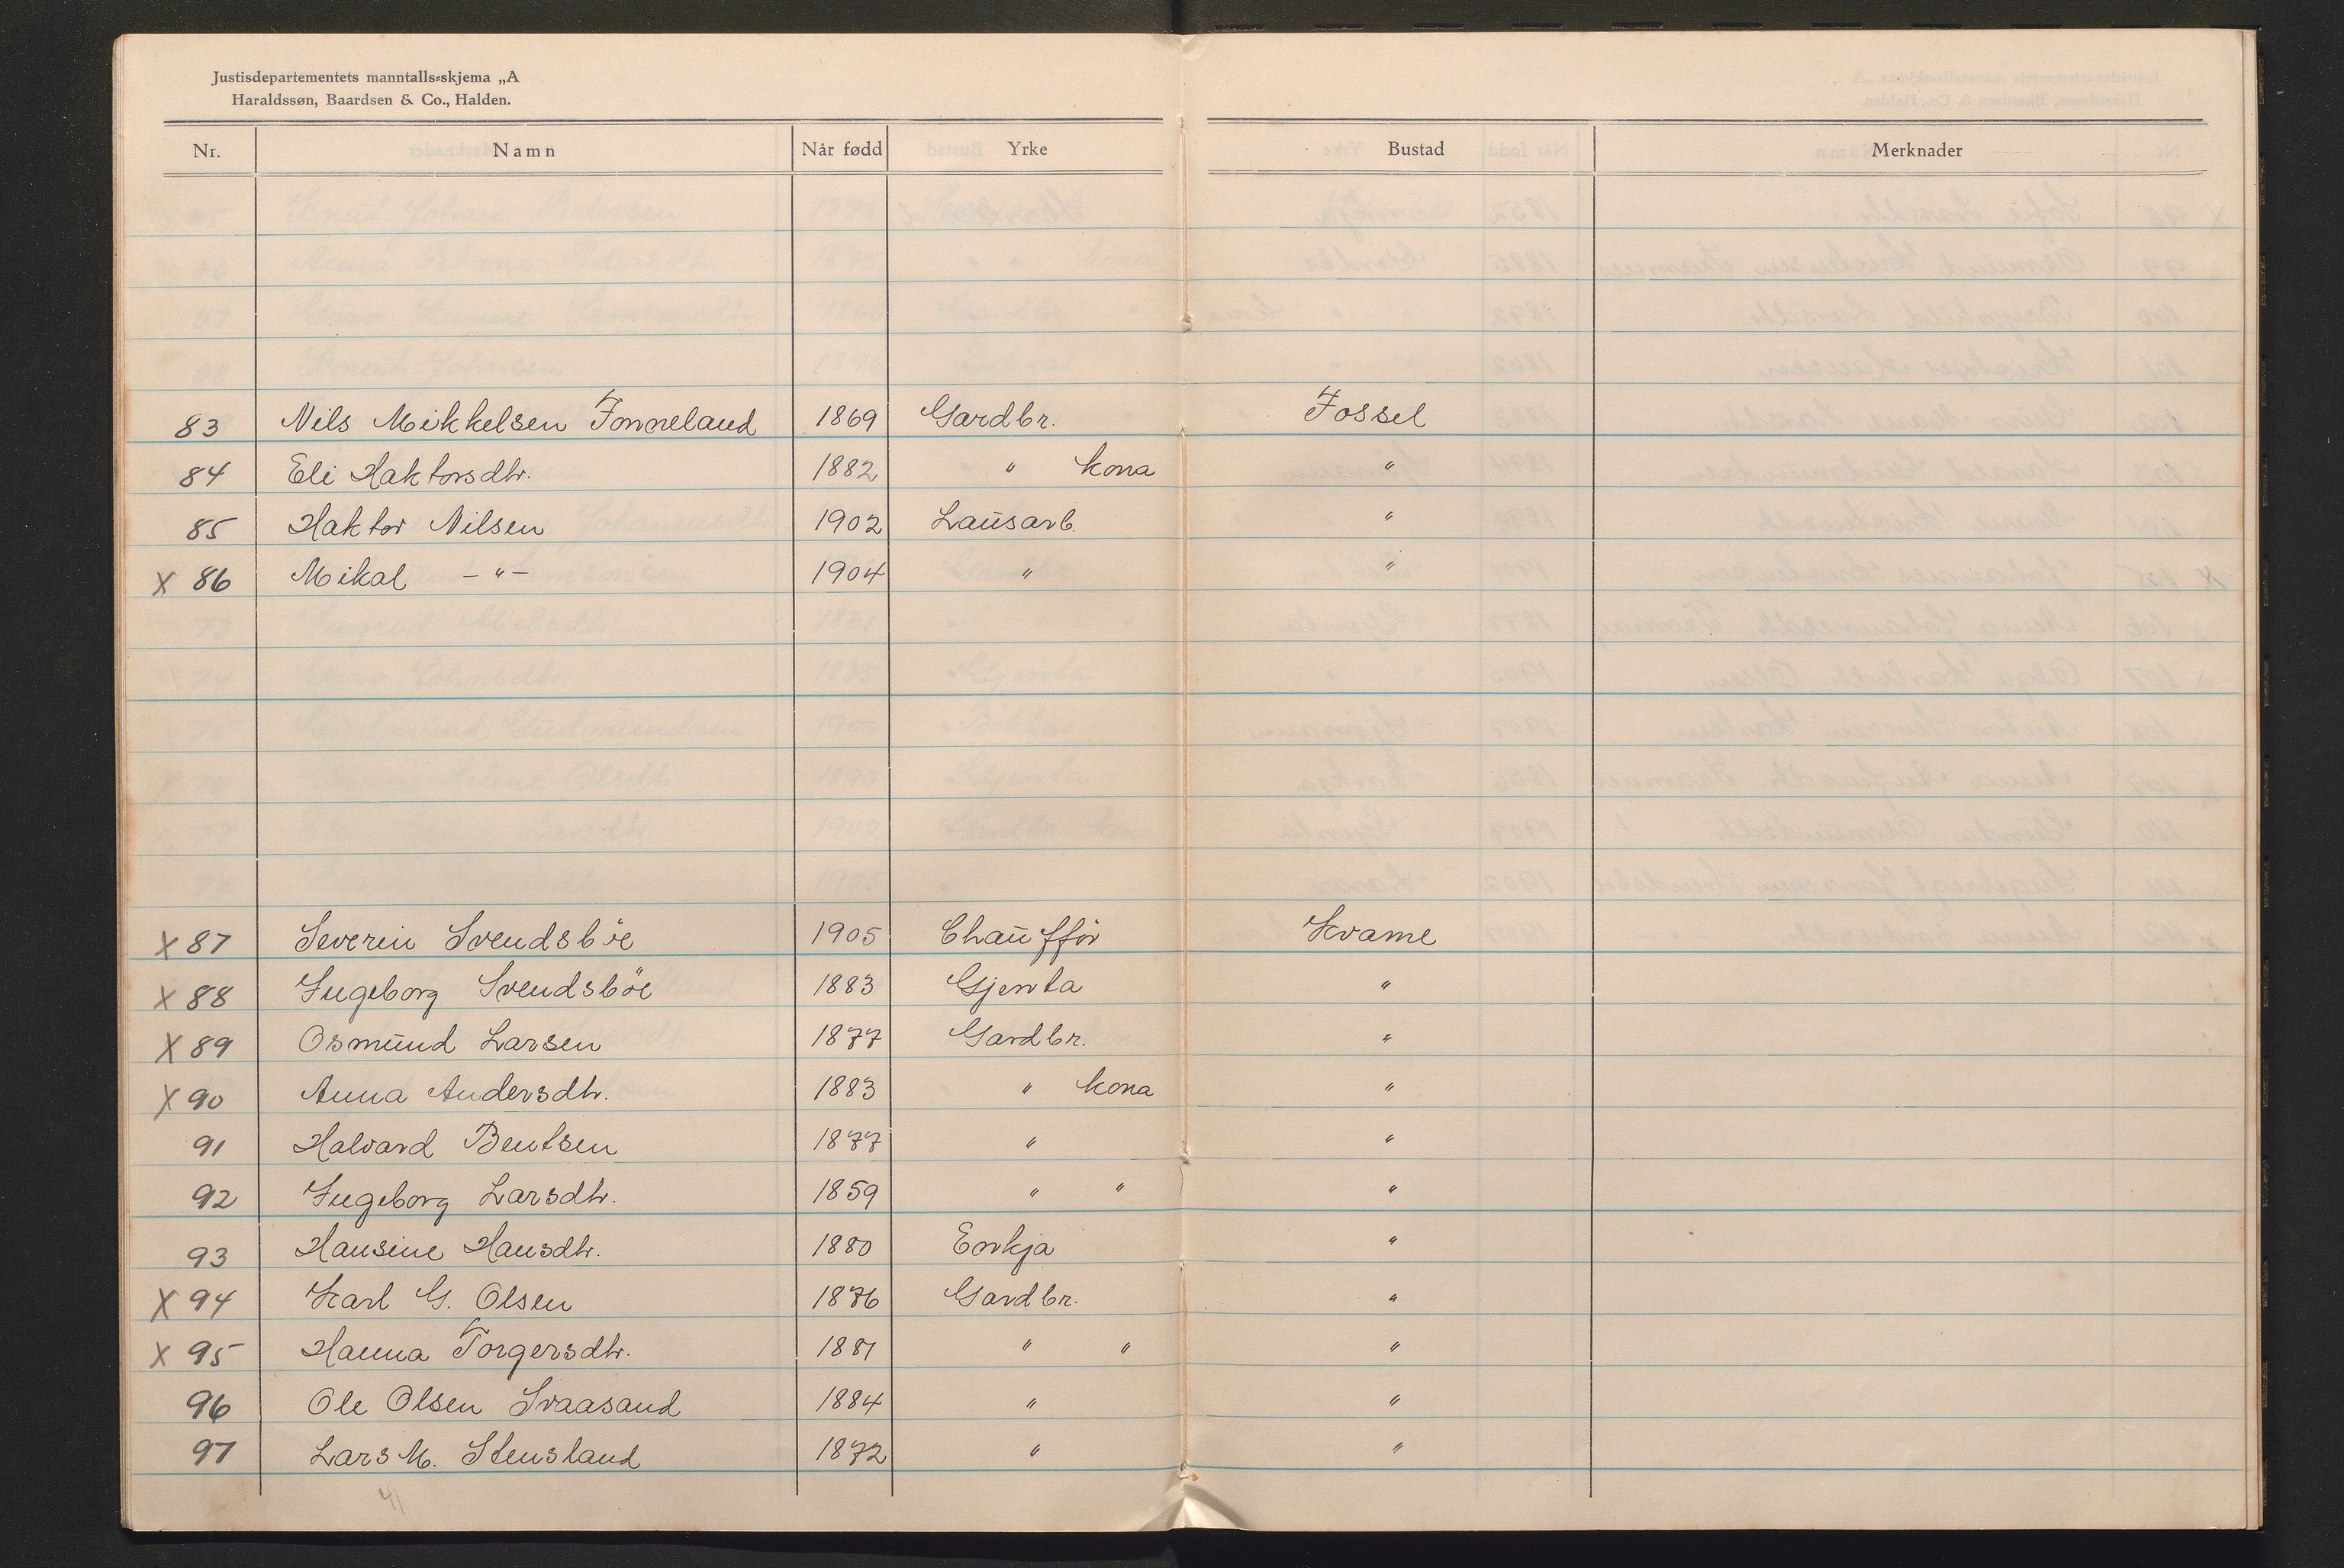 Justisdepartementets manntalls-skjema „A
Haraldssøn, Baardsen & Co., Halden.
Nr. Namn Når fødd Yrke Bustad Merknader
83 Nils Mikkelsen Fonneland 1869 Gardbr. Fossel
84 Eli Haktorsdtr. 1882 " kona "
85 Haktor Nilsen 1902 Lausarb. "
X 86 Mikal - " - 1904 " "
X 87 Severin Svendsböe 1905 Chaufför Kvame
X 88 Ingeborg Svendsböe 1883 Gjenta "
X 89 Osmund Larsen 1877 Gardbr. "
X 90 Anna Andersdtr. 1883 " kona "
91 Halvard Bentsen 1877 " "
92 Ingeborg Larsdtr. 1859 " " "
93 Hansine Hansdtr. 1880 Enkja "
X 94 Karl G. Olsen 1876 Gardbr. "
X 95 Hanna Torgersdtr. 1881 " " "
96 Ole Olsen Svaasand 1884 " "
97 Lars M. Stensland 1872 " "
41